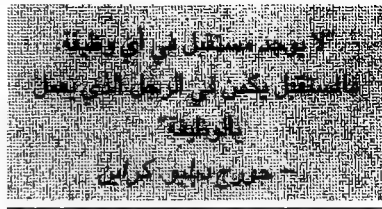 "لا يوجد مستقبل في أي وظيفة.
فالمستقبل يكمن في الرجل الذي يعمل
بالوظيفة"
– جورج دبليو كراين